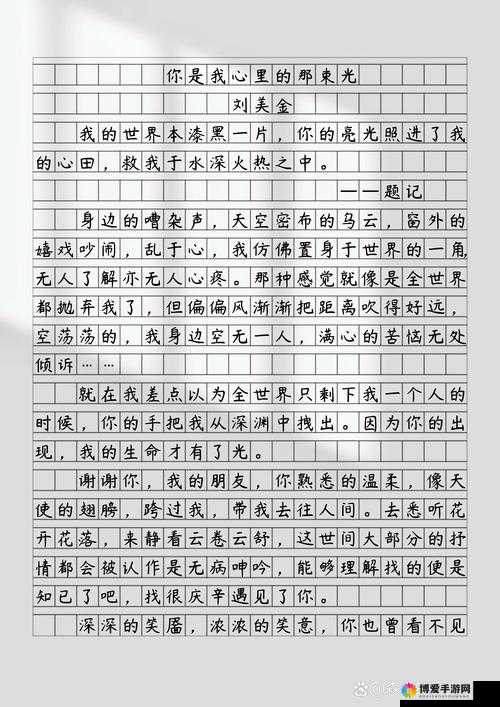 你是我心里的那束光
刘美金
我的世界本漆黑一片，你的亮光照进了我
的心田，救我于水深火热之中。
——题记
身边的嘈杂声，天空密布的乌云，窗外的
嬉戏吵闹，乱于心，我仿佛置身于世界的一角，
无人了解亦无人心疼。那种感觉就像是全世界
都抛弃我了，但偏偏风渐渐把距离吹得好远，
空荡荡的，我身边空无一人，满心的苦恼无处
倾诉……
就在我差点以为全世界只剩下我一个人的
时候，你的手把我从深渊中拽出。因为你的出
现，我的生命才有了光。
谢谢你，我的朋友，你熟悉的温柔，像天
使的翅膀，跨过我，带我去往人间。去悉听花
开花落，来静看云卷云舒，这世间大部分的抒
情都会被认作是无病呻吟，能够理解找的便是
知已了吧，找很庆辛遇见了你。
深深的笑靥，浓浓的笑意，你也曾看不见
博爱手游网